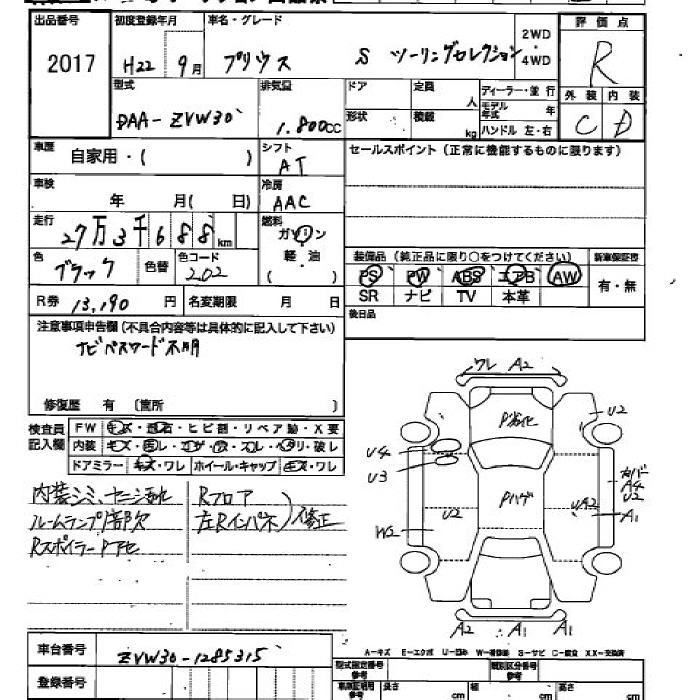 出品番号 初度登録年月 車名・グレード 評価点
2017 H22 9月 プリウス S ツーリングセレクション 2WD 4WD R
型式 排気量 ドア 定員 人 ディーラー・並行 外装 内装
DAA-ZVW30 1.800cc 形状 積載 kg モデル年式 年 C D
ハンドル 左・右
車歴 自家用・( ) シフト AT セールスポイント(正常に機能するものに限ります)
車検 年 月( 日) 冷房 AAC
走行 27万3千688km 燃料 ガソリン
軽油
( )
色 ブラック 色替 色コード 202
装備品(純正品に限り○をつけてください) 新車保証書
PS PW ABS エアB AW 有・無
SR ナビ TV 本革
R券 13,190円 名変期限 月 日 後日品
注意事項申告欄(不具合内容等は具体的に記入して下さい)
ナビパスワード不明
修復歴 有 〔箇所 〕
検査員記入欄 FW キズ・飛石・ヒビ割・リペア跡・X要
内装 キズ・
ドアミラー キズ・ワレ ホイール・キャップ キズ・ワレ
内装シミ、
ルームランプ1部欠
Rスポイラー
Rフロア
左Rインパネ
修正
ワレ A2
P劣化
U2
U4
U3
Pハゲ
カバー
A4
U2
U2
UA2
A1
W2
A2 A1 A1
車台番号 ZVW30-1285315
登録番号
A-キズ E-エクボ U-凹み W-補修跡 S-サビ C-腐食 XX-交換済
型式指定番号 参考 類別区分番号 参考
車庫証明用 参考 長さ cm 幅 cm 高さ cm